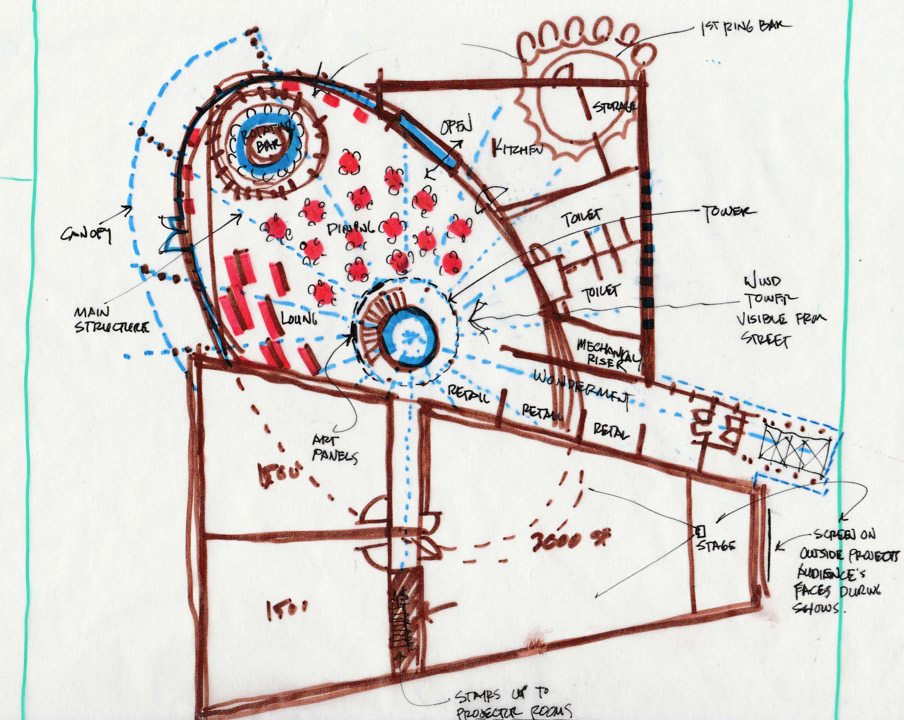 1ST RING BAR
STORAGE
OPEN
KITCHEN
ROTATING
BAR
TOILET
TOWER
CANOPY
DINING
WIND
TOWER
VISIBLE FROM
STREET
TOILET
MAIN
STRUCTURE
LOUNG
MECHANICAL
RISER
WONDERMENT
RETAIL
RETAIL
RETAL
ART
PANELS
1500
3000 SF
STAGE
SCREEN ON
OUTSIDE PROJECTS
AUDIENCE'S
FACES DURING
SHOWS.
1500
STAIRS UP TO
PROJECTOR ROOMS